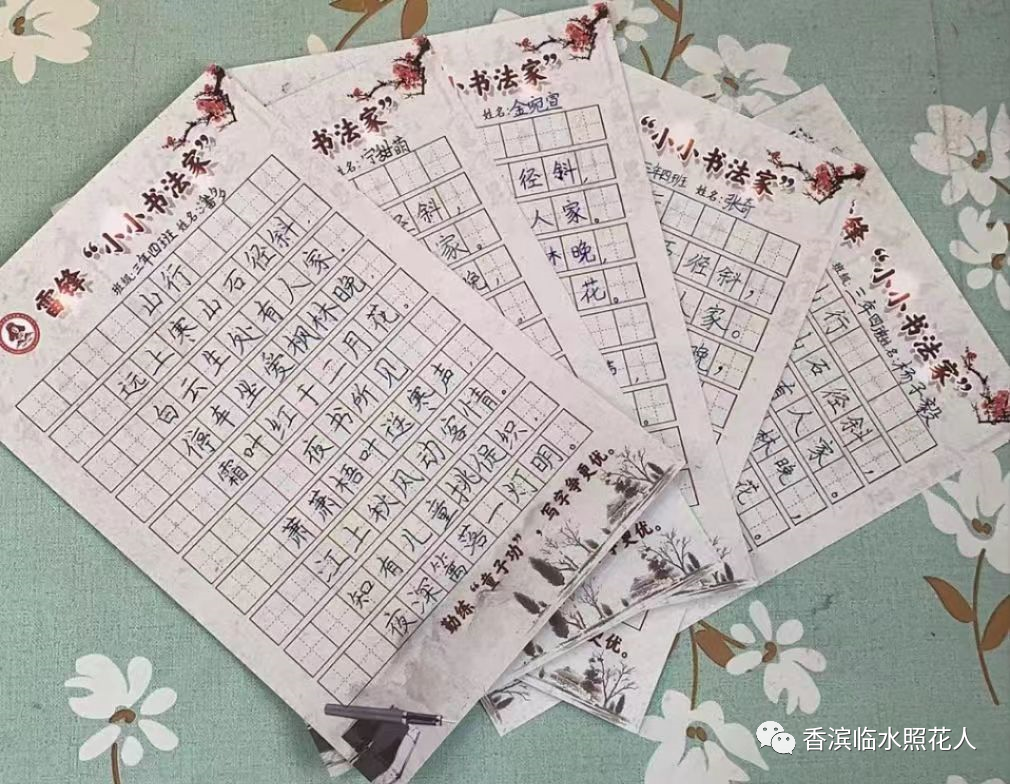 雷锋 “小小书法家”
班级:三年四班 姓名:
山行
远上寒山石径斜
白云生处有人家.
停车坐爱枫林晚
霜叶红于二月花。
夜书所见
萧萧梧叶送寒声,
江上秋风动客情。
知有儿童挑促织.
夜深篱落一灯明。
勤练“童子功”,写字争更优。
书法家”
姓名:宁甜萌
径斜,
家。
晚,
小书法家”
姓名:金宛宣
径斜,
人家。
林晚,
花。
“小小书法家”
三年四班 姓名:张奇
石径斜,
人家。
晚,
花。
锋 “小小书法家”
班级:三年四班姓名:杨子毅
行
山石径斜,
有人家。
林晚,
花,
更优。
更优。
香滨临水照花人